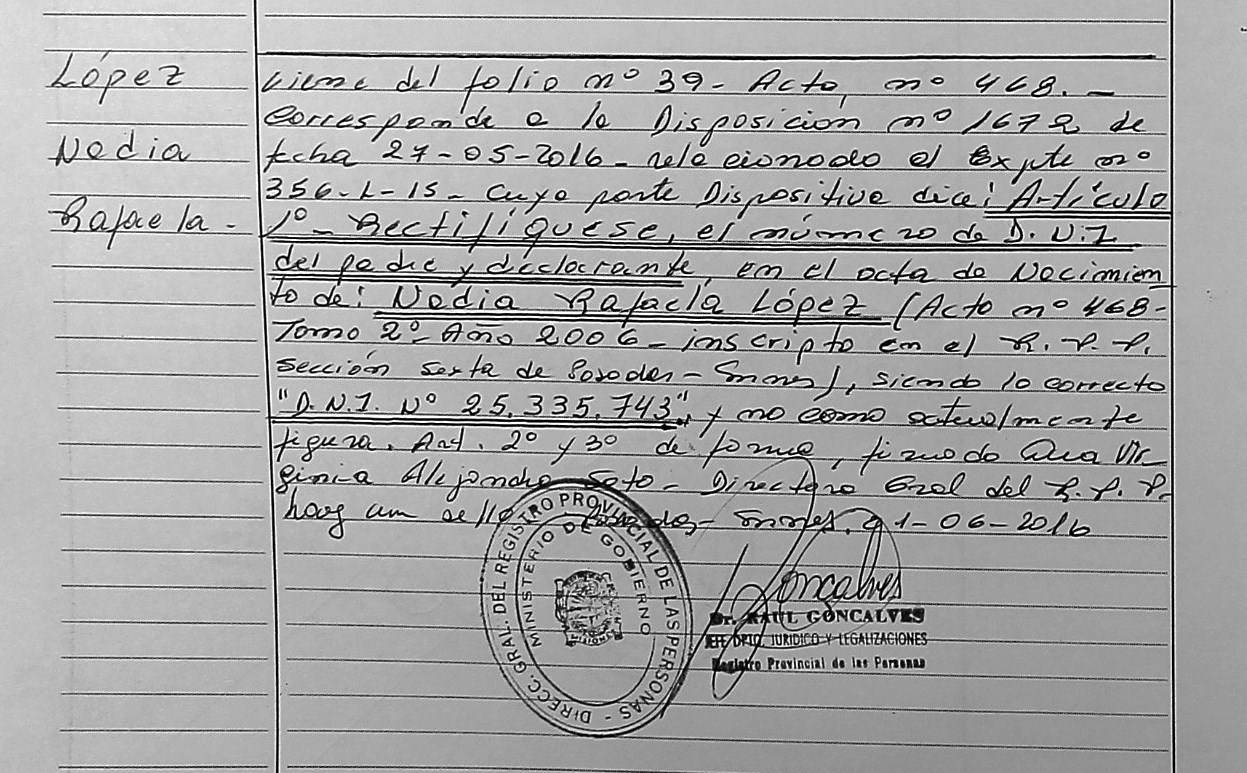 López
Nadia
Rafaela -
Viene del folio nº 39 - Acta, nº 468. -
Corresponde a la Disposicion nº 1672 de
fcha 27-05-2016 - relacionado al Expte nº
356-L-15 - Cuya parte Dispositiva dice: Artículo
1º - Rectifíquese, el número de D.N.I
del padre y declarante, en el acta de Nacimien
to de: Nadia Rafaela López (Acta nº 468-
Tomo 2º - Año 2006 - inscripta en el R.P.P.
sección sexta de Posadas - Smnes), siendo lo correcto
"D.N.I. Nº 25.335.743", y no como actualmente
figura. Art. 2º y 3º de forma, firmado Ana Vir
ginia Alejandra Soto - Directora Gral del R.P.P.
hay un sello Posadas - Smnes, 01-06-2016
DIRECC. GRAL. DEL REGISTRO PROVINCIAL DE LAS PERSONAS -
MINISTERIO DE GOBIERNO
MISIONES
Goncalves
Dr. RAUL GONCALVES
JEFE DPTO. JURIDICO Y LEGALIZACIONES
Registro Provincial de las Personas